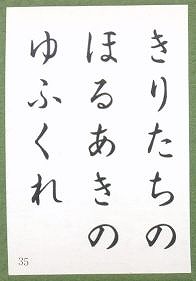 きりたちの
ほるあきの
ゆふくれ
35